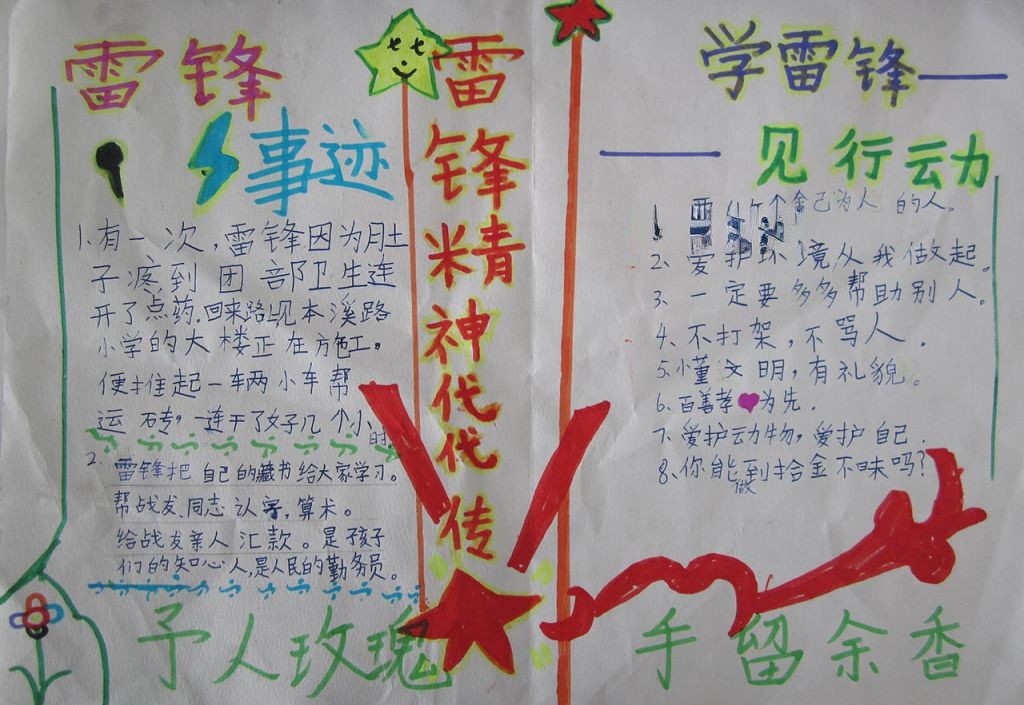 雷锋
事迹
1.有一次,雷锋因为肚
子疼,到团部卫生连
开了点药,回来路见本溪路
小学的大楼正在施工。
便推起一车两小车帮
运砖,一连干了好几个小
时
2.雷锋把自己的藏书给大家学习。
帮战友同志认字,算术。
给战友亲人汇款。是孩子
们的知心人,是人民的勤务员。
雷锋精神代代传
学雷锋——
——见行动
1 要 个舍己为人的人。
2.爱护环境从我做起。
3.一定要多多帮助别人。
4.不打架,不骂人.
5.小董文明,有礼貌。
6.百善孝为先.
7.爱护动物,爱护自己.
8.你能做到拾金不昧吗?
予人玫瑰
手留余香